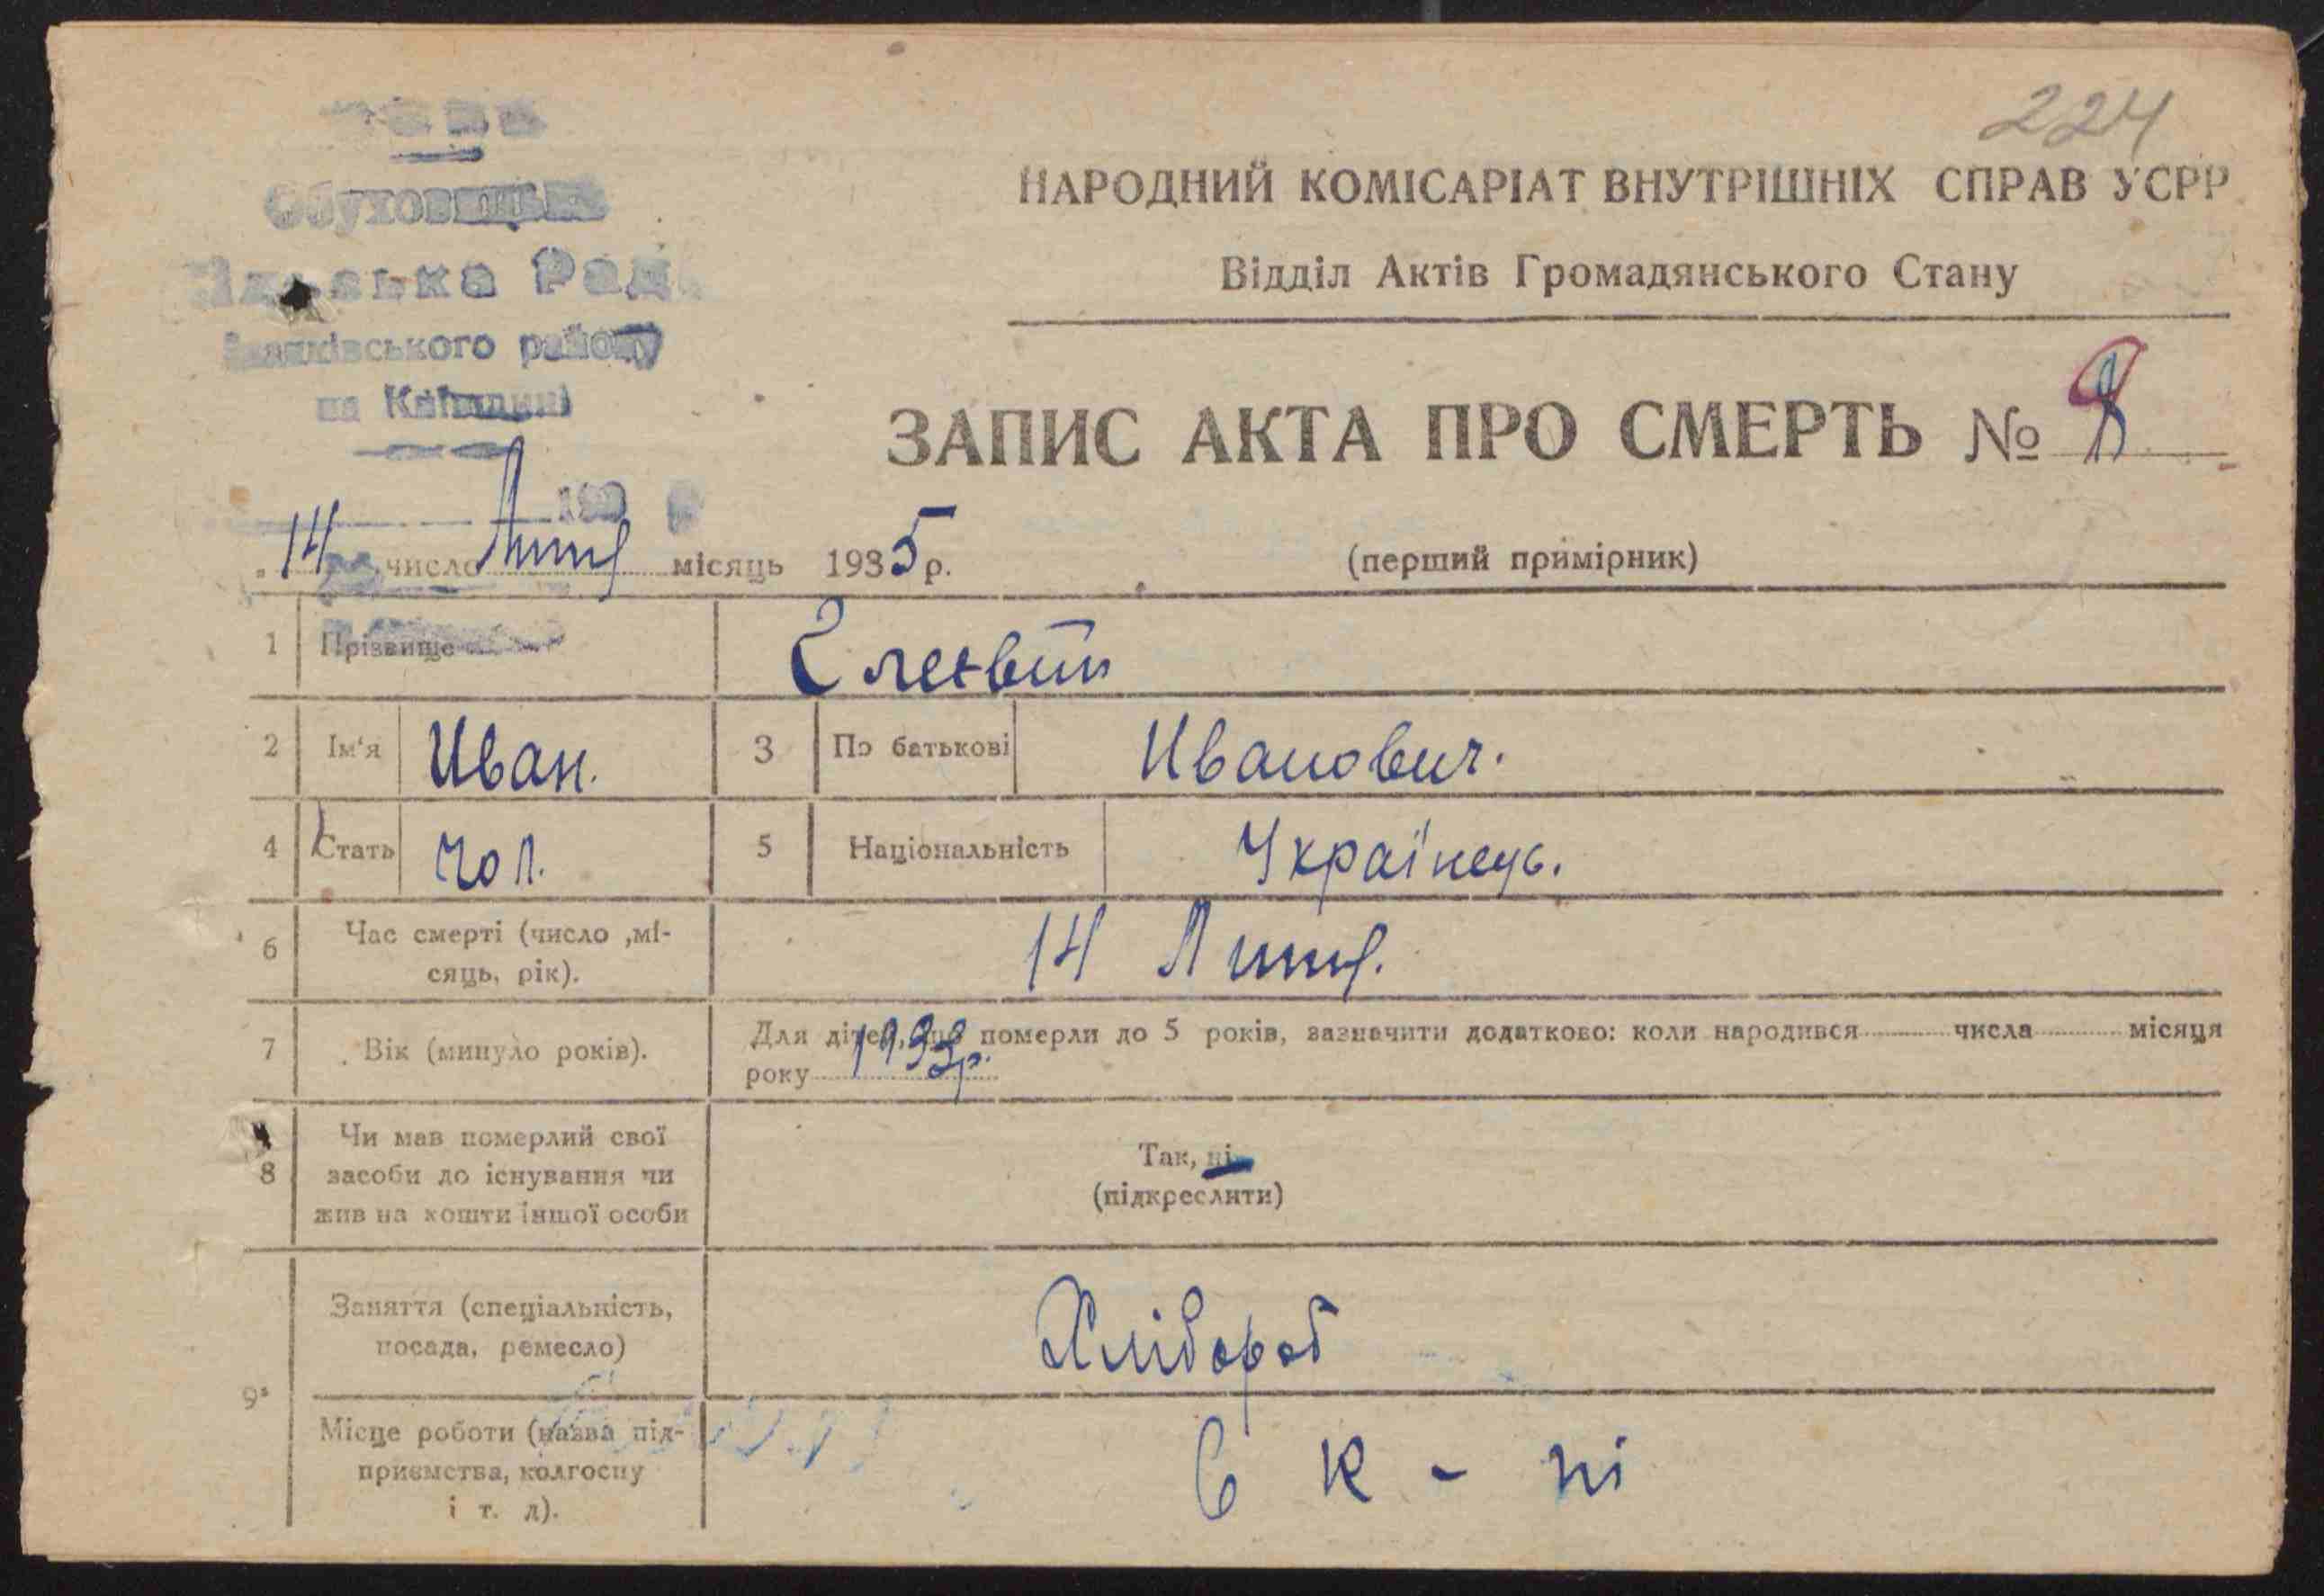 224
НАРОДНИЙ КОМІСАРІАТ ВНУТРІШНІХ СПРАВ УСРР
Відділ Актів Громадянського Стану
Рад
району
на
ЗАПИС АКТА ПРО СМЕРТЬ № 8
14 число місяць 1935 р.
(перший примірник)
1 Прізвище
2 Ім'я Иван. 3 По батькові Иванович.
4 Стать Чол. 5 Національність Українець.
6 Час смерті (число ,мі-
сяць, рік).
14
7 Вік (минуло років).
Для дітей, що померли до 5 років, зазначити додатково: коли народився числа місяця
року 1933р.
8 Чи мав померлий свої
засоби до існування чи
жив на кошти іншої особи
Так, ні
(підкреслити)
9 Заняття (спеціальність,
посада, ремесло)
Хлібороб
Місце роботи (назва під-
приємства, колгоспу
і т. д).
в к - ні